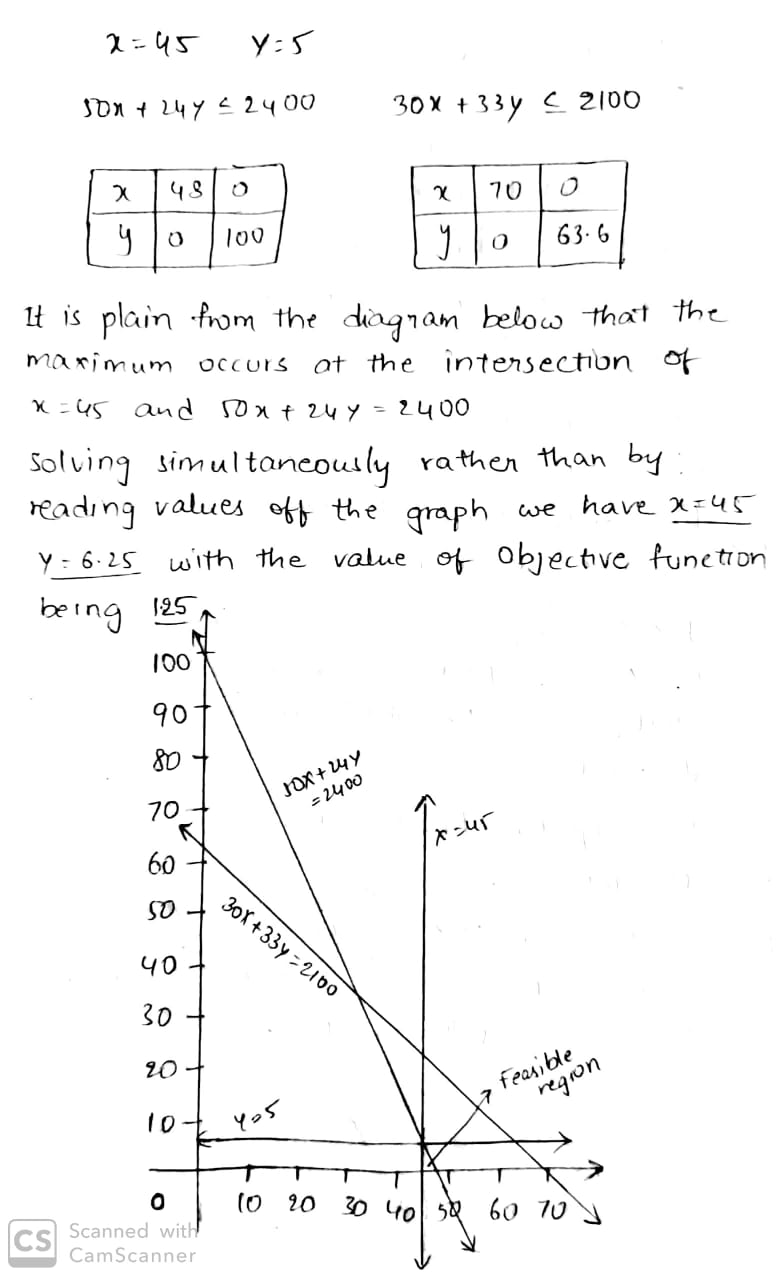 x = 45 y = 5
50x + 24y ≤ 2400 30x + 33y ≤ 2100
x 48 0 x 70 0
y 0 100 y 0 63.6
It is plain from the diagram below that the
maximum occurs at the intersection of
x = 45 and 50x + 24y = 2400
solving simultaneously rather than by
reading values off the graph we have x = 45
y = 6.25 with the value of objective function
being 1.25
100
90
80
50x + 24y
= 2400
70
x = 45
60
50
30x + 33y = 2100
40
30
20
Feasible
region
10
y = 5
0 10 20 30 40 50 60 70
CS Scanned with
CamScanner